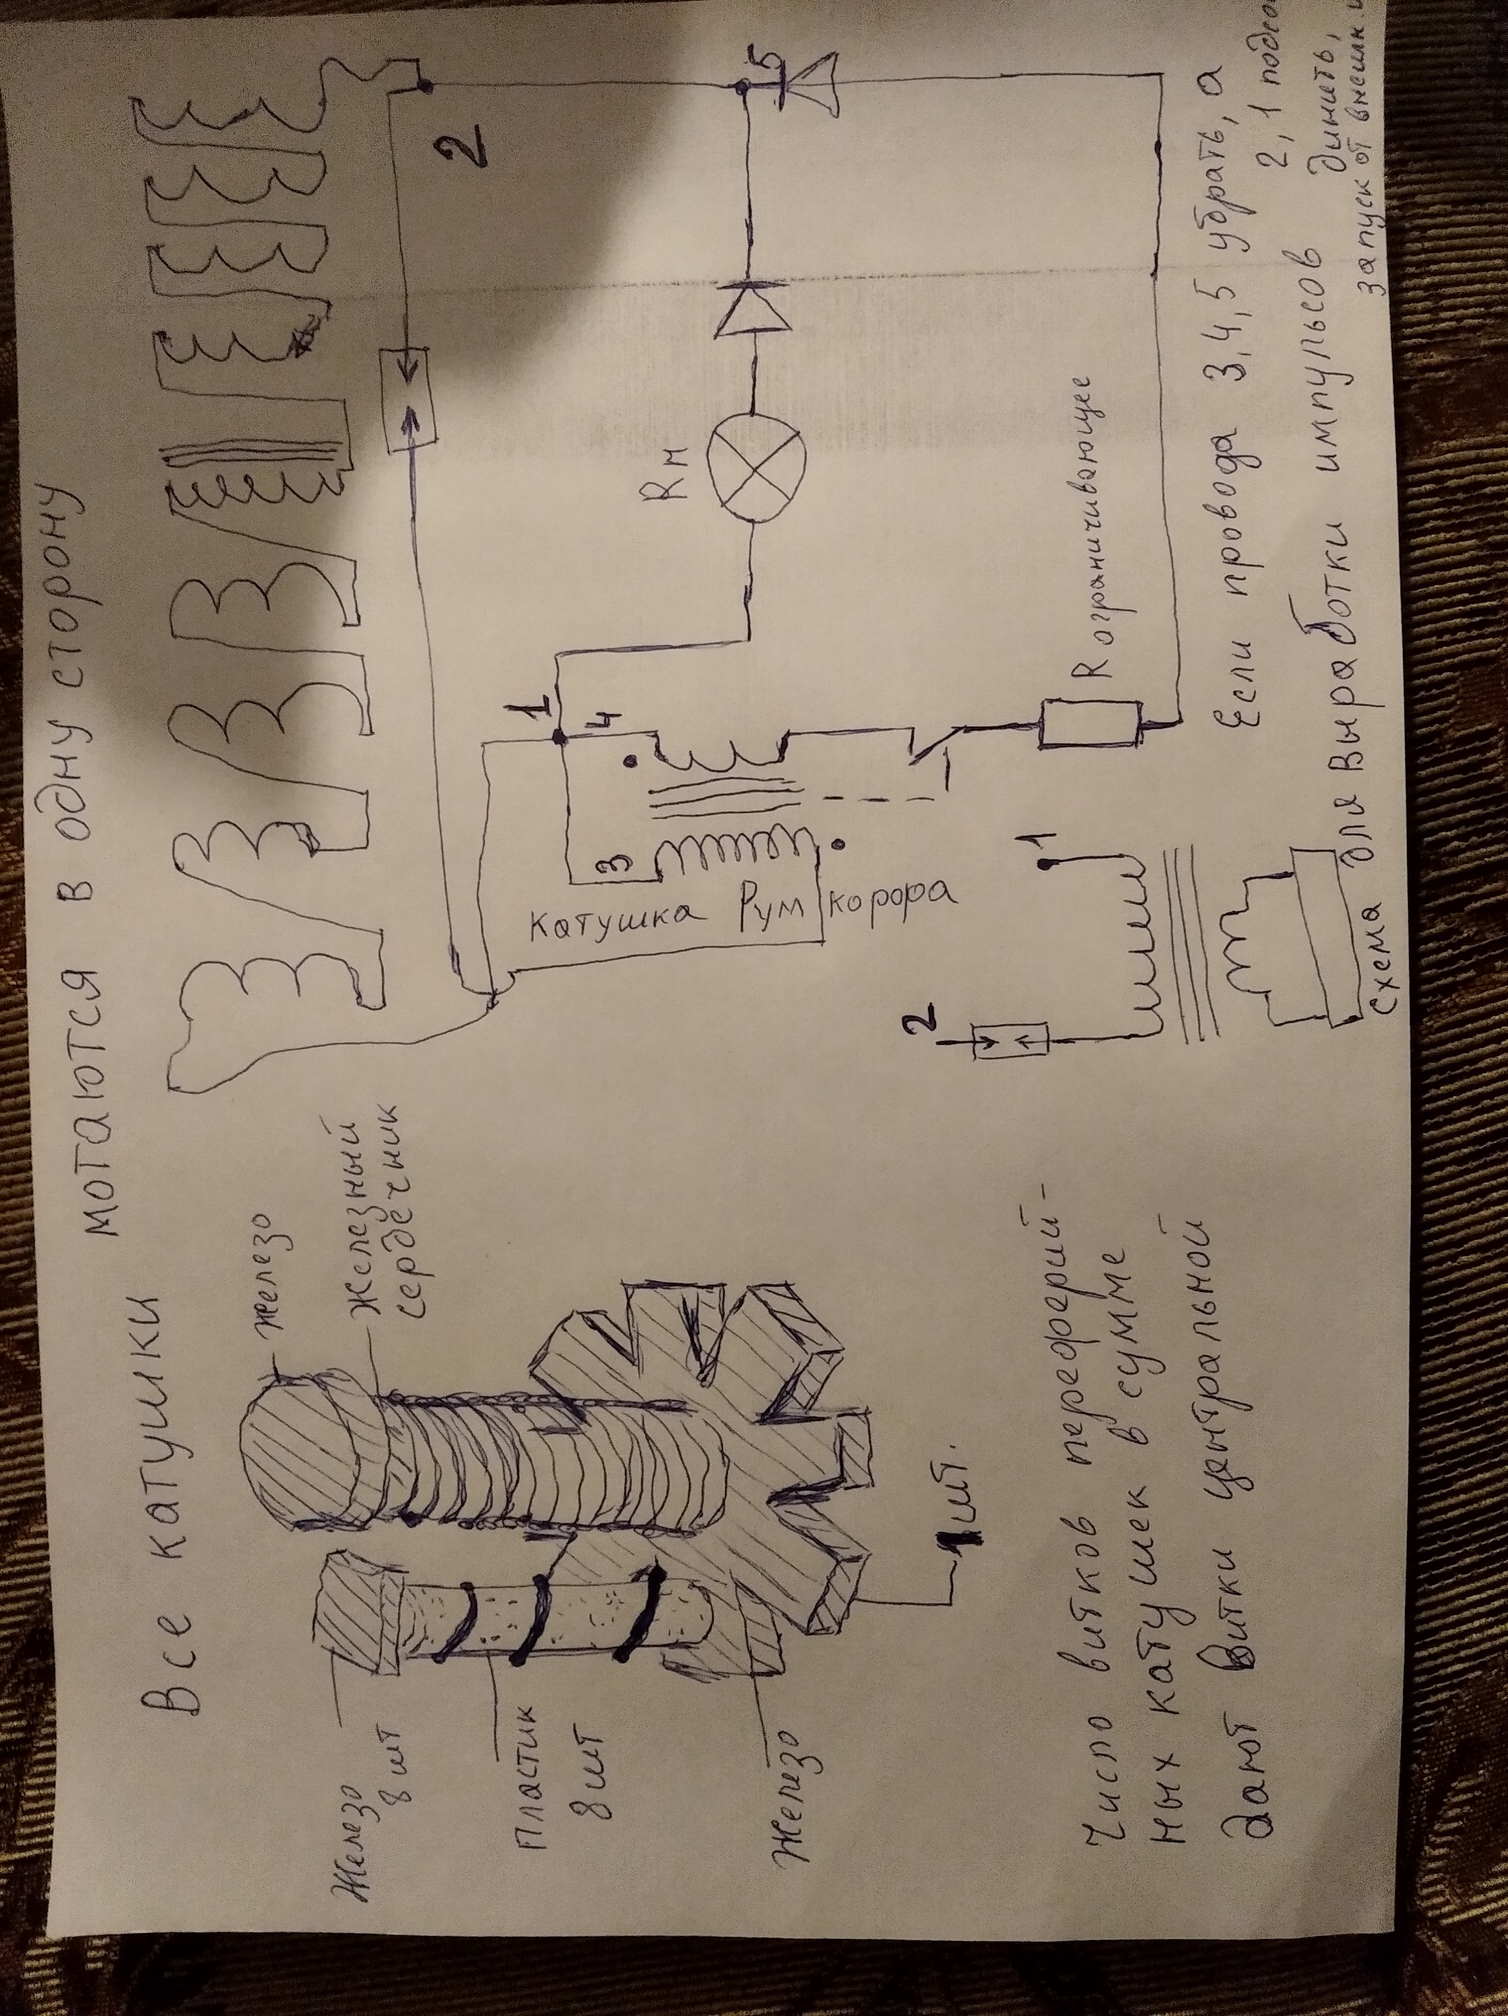 Все катушки мотаются в одну сторону
Железо
Железный
сердечник
Железо
8 шт
Пластик
8 шт
Железо
1 шт.
Число витков переферий-
ных катушек в сумме
дают витки центральной
2
1
4
3
5
Rн
Катушка Румкорфа
R ограничивающее
2
1
Если провода 3,4,5 убрать, а
2,1
Схема для выработки импульсов
запуск от